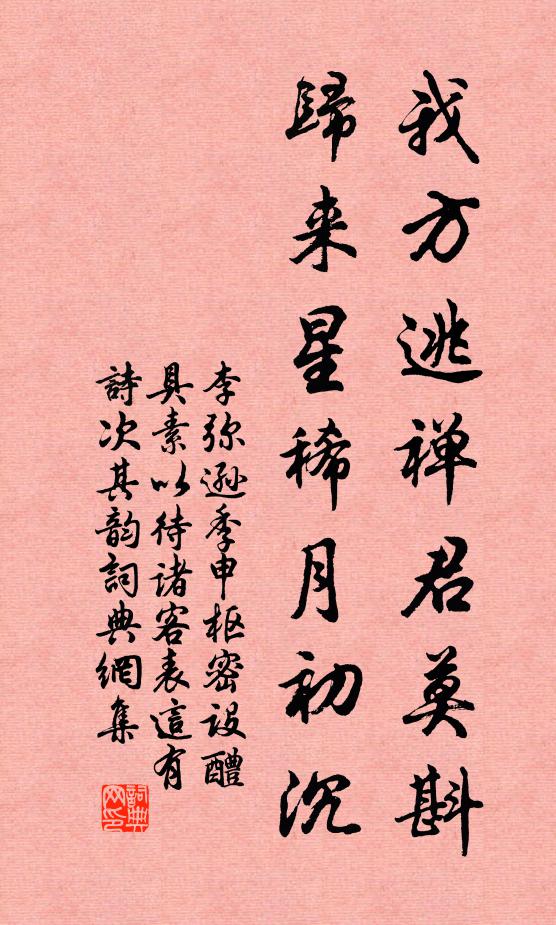 我方逃禅君莫斟
歸来星稀月初沉
李弥遜季申枢密設醴
具素以待诸客表這有
詩次其韵詞典網集
詞典网印